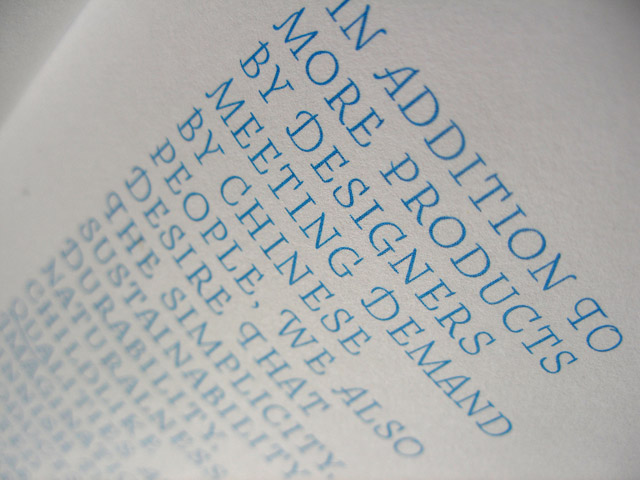 IN ADDITION TO
MORE PRODUCTS
BY DESIGNERS
MEETING DEMAND
BY CHINESE
PEOPLE, WE ALSO
DESIRE THAT
THE SIMPLICITY,
SUSTAINABILITY,
DURABILITY,
NATURALNESS
CHILDLIKE
QUALITIES
IMAGINATI